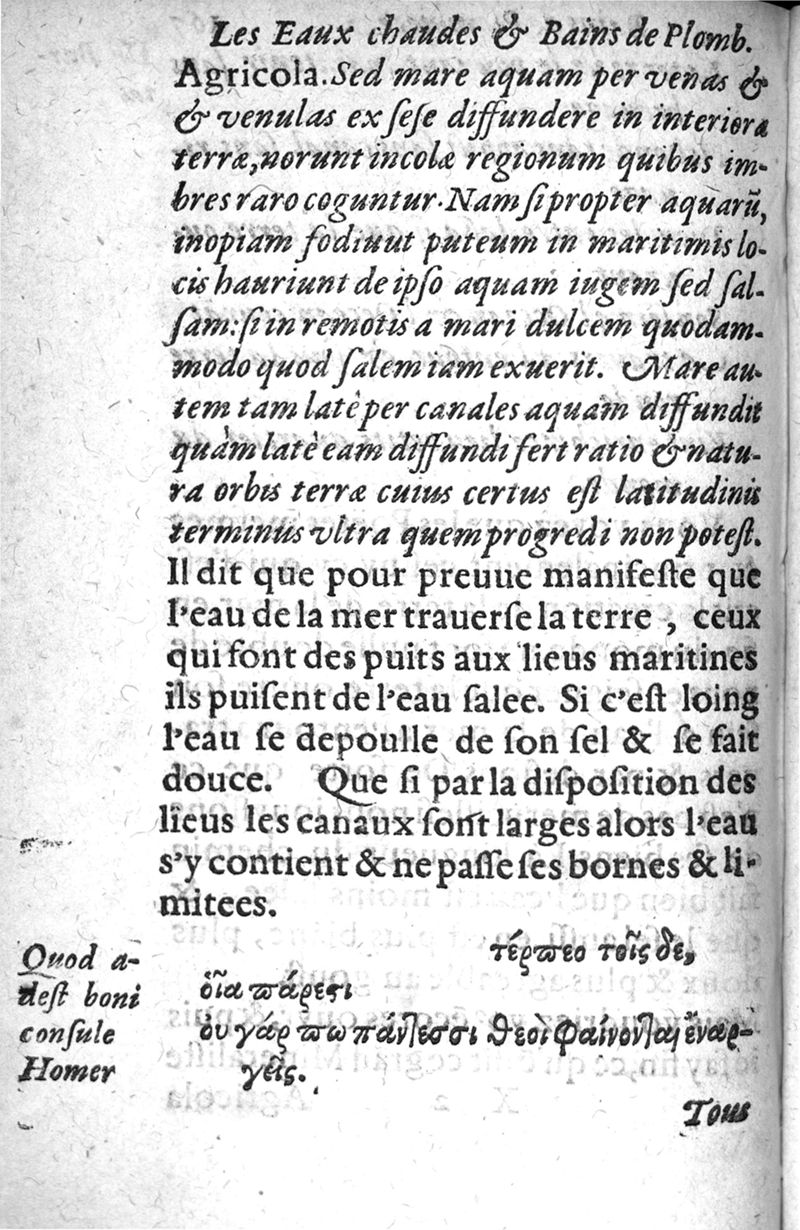 Les Eaux chaudes & Bains de Plomb.
Agricola. Sed mare aquam per venas &
& venulas ex ſeſe diffundere in interiora
terræ, norunt incolæ regionum quibus im-
bres raro coguntur. Nam ſi propter aquarū,
inopiam fodiuut puteum in maritimis lo-
cis hauriunt de ipſo aquam iugem ſed ſal-
ſam: ſi in remotis a mari dulcem quodam-
modo quod ſalem iam exuerit. Mare au-
tem tam latè per canales aquam diffundit
quàm latè eam diffundi fert ratio & natu-
ra orbis terræ cuius certus eſt latitudinis
terminus vltra quem progredi non poteſt.
Il dit que pour preuue manifeſte que
l'eau de la mer trauerſe la terre , ceux
qui font des puits aux lieus maritines
ils puiſent de l'eau ſalee. Si c'eſt loing
l'eau ſe depoulle de ſon ſel & ſe fait
douce. Que ſi par la diſpoſition des
lieus les canaux ſont larges alors l'eau
s'y contient & ne paſſe ſes bornes & li-
mitees.
τέρπεο τοῖς δε,
Quod a-
deſt boni
conſule
Homer
ὁῖα πάρεστι
ὀυ γάρ πω πάντεσσι θεοὶ φαίνονται ἔναρ-
γεῖς.
Tous